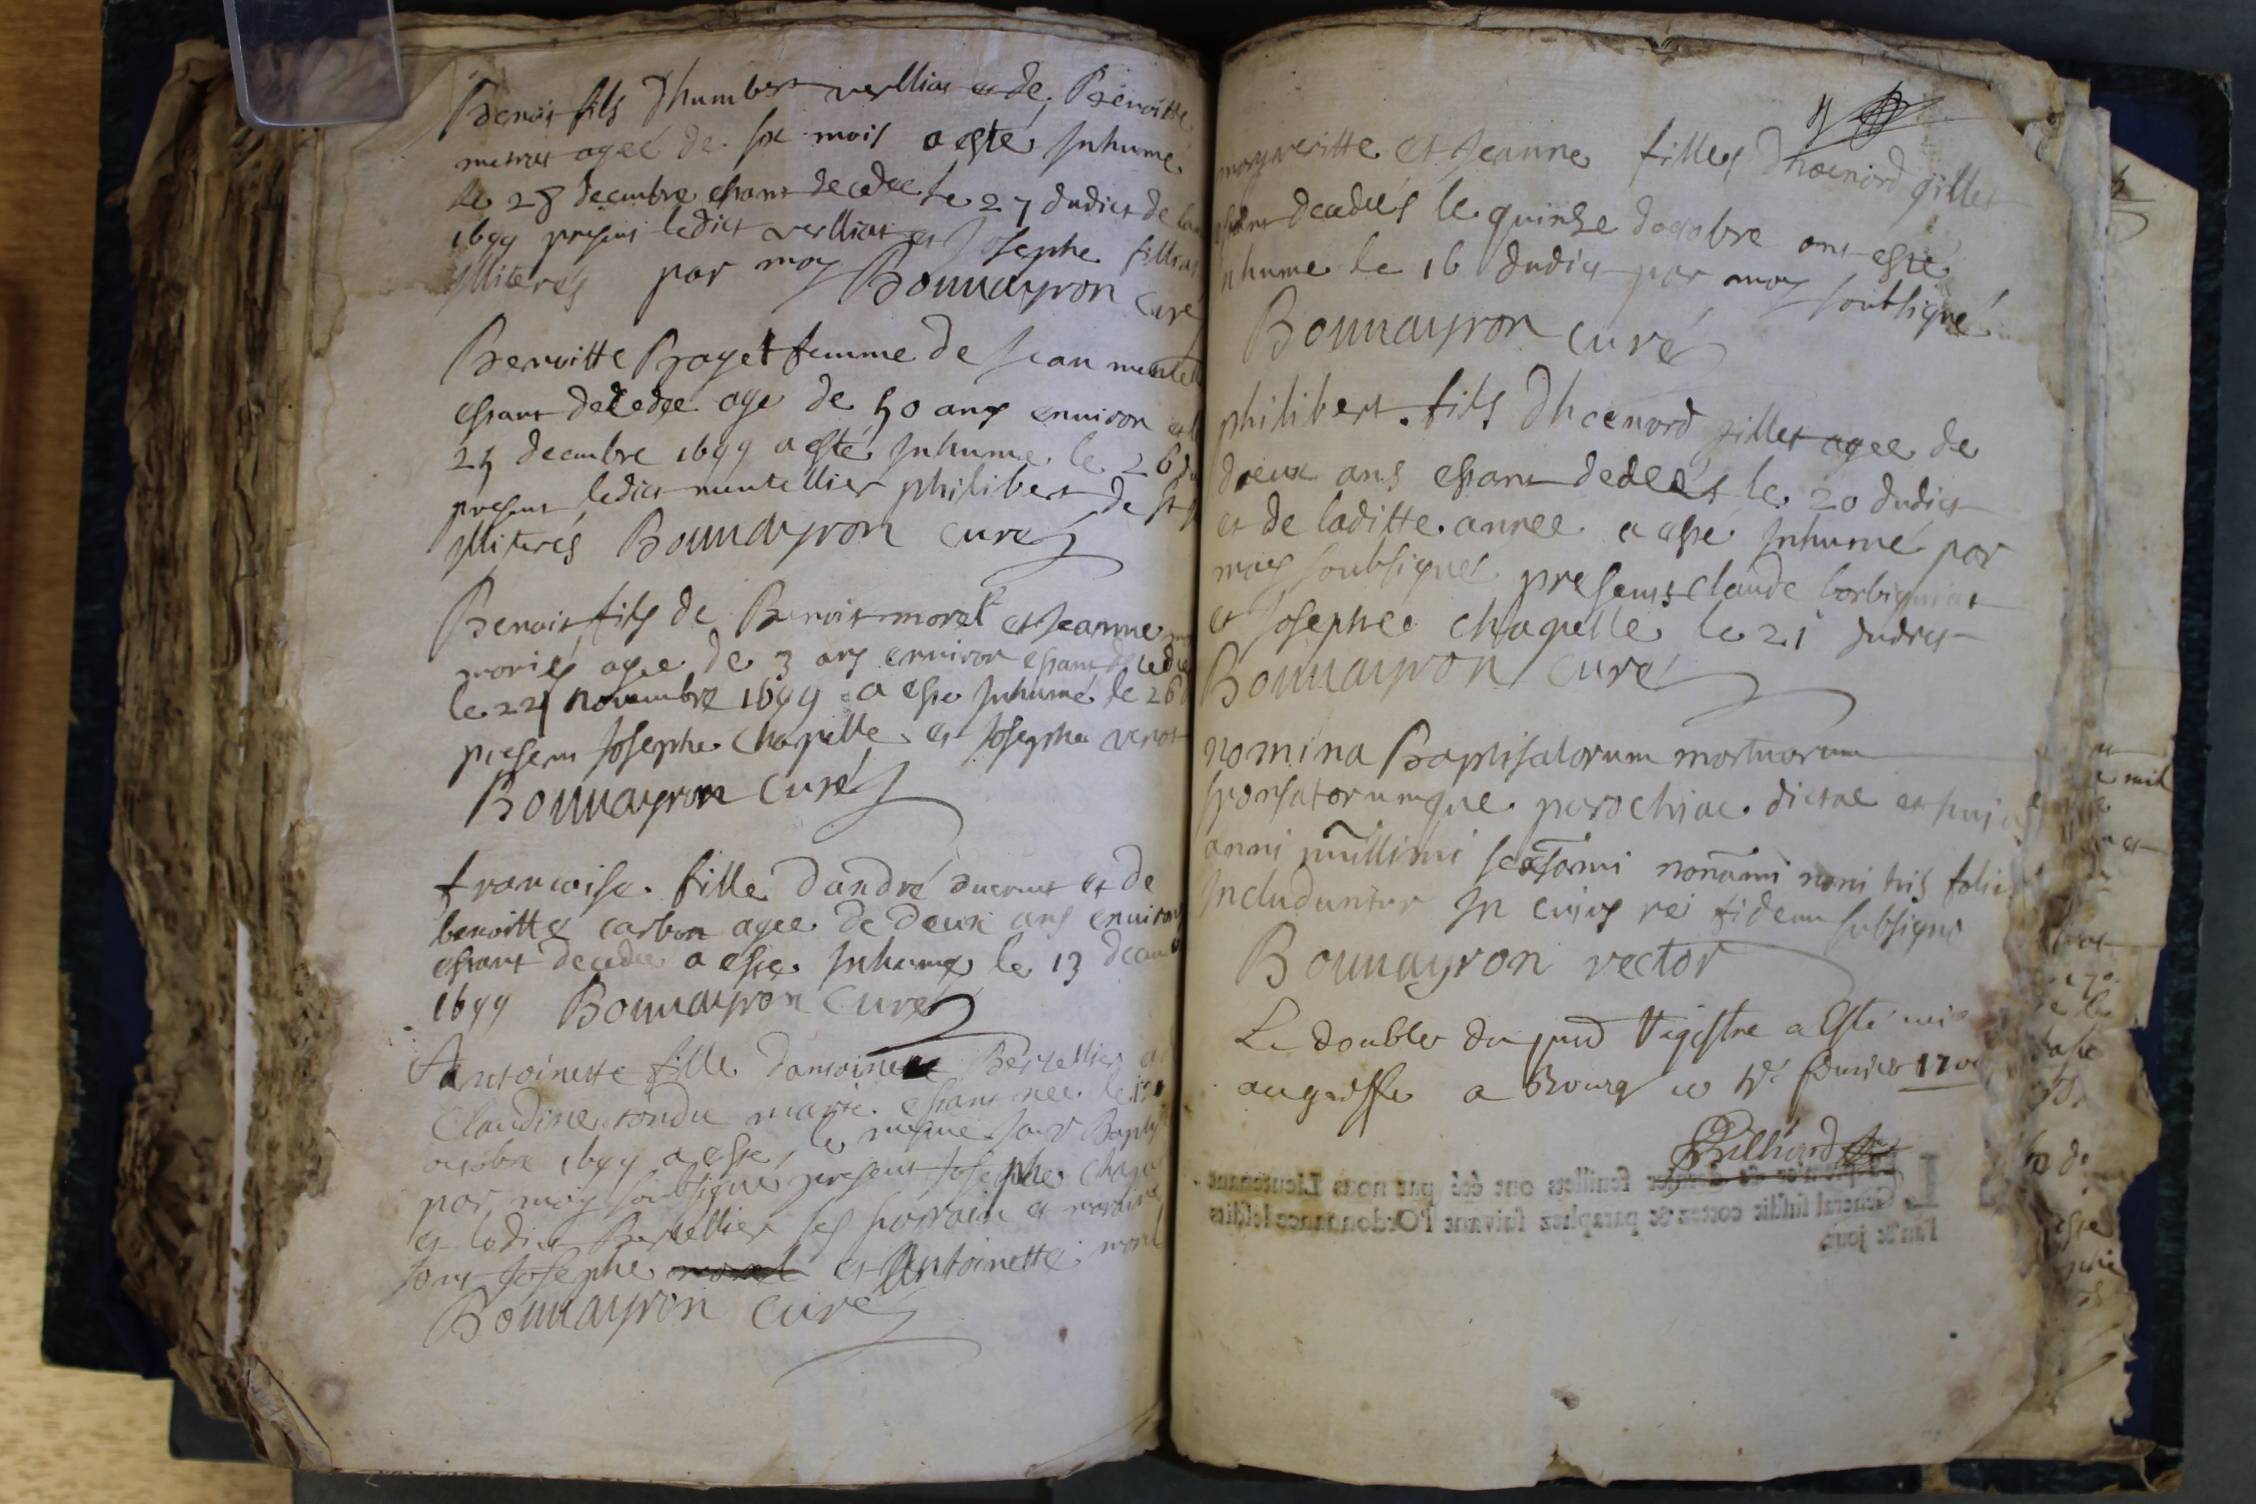 Benoit fils Dhumbert verlliat et de Benoitte
agee de six mois a esté Inhumé
le 28 decembre estant decedee le 27 dudict de
1699 present ledict verlliat et Josephe fillias
Illiterés par moy Bonnayron curé
Benoitte femme de Jean
estant decedee age de 50 ans environ
25 decembre 1699 a esté Inhumee le 26
present ledict mintellier philibert de
Illiterés Bonnayron curé
Benoit fils de Benoit morel et Jeanne
mariés agee de 3 ans environ estant decede
le novembre 1699 a esté Inhumé le 26
present Josephe Chapelle et Josephe
Bonnayron Curé
francoise fille dandré et de
benoitte carbon agee de deux ans environ
estant decedee a esté Inhume le 13
1699 Bonnayron Curé
Antoinette fille dantoine Bertellier
Claudine rondu mariés estant nee le
octobre 1699 a esté le mesme Jour
par moy soubsigné present Josephe
et ledict Bertellier ses parrain et
sont Josephe morel et Antoinette morel
Bonnayron Curé
margueritte et Jeanne filles Dhoenord gillet
estant decedées le quinse doctobre ont esté
Inhume le 16 dudict par moy soubsigné
Bonnayron curé
philibert fils Dhoenord gillet agee de
deux ans estant decedé le 20 dudict
et de laditte annee a esté Inhumé par
moy soubsigné presents claude
et Josephe Chapelle le 21 dudict
Bonnayron Curé
nomina Baptisatorum mortuorum
sponsatorumque parochiae dictae et hujus
anni millimi nonami noni tris foliis
Includuntur In cujus rei fidem subsigno
Bonnayron rector
Le double du pnt Registre a Esté mis
au greffe a Bourg ce feuvrier 1700
premier & dernier feuillets ont été par nous Lieutenant
General susdit cottez & paraphez suivant l'Ordonnance lesdits
l'an & jour